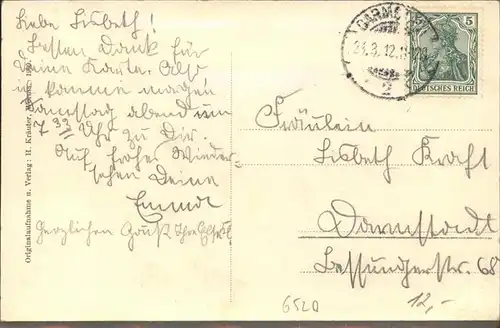 Liebe Lisbeth!
Besten Dank für
Deine Karte. Also
ich komme morgen
Samstag abend um
7 Uhr zu Dir.
Auf frohes Wieder-
sehen Deine
Emma
Herzlichen Gruß
Originalaufnahme u. Verlag: H. Kräuter,
DARMSTADT
2
5
DEUTSCHES REICH
Fräulein
Lisbeth Kraft
Darmstadt
Bessungerstr. 68
6520
12,-